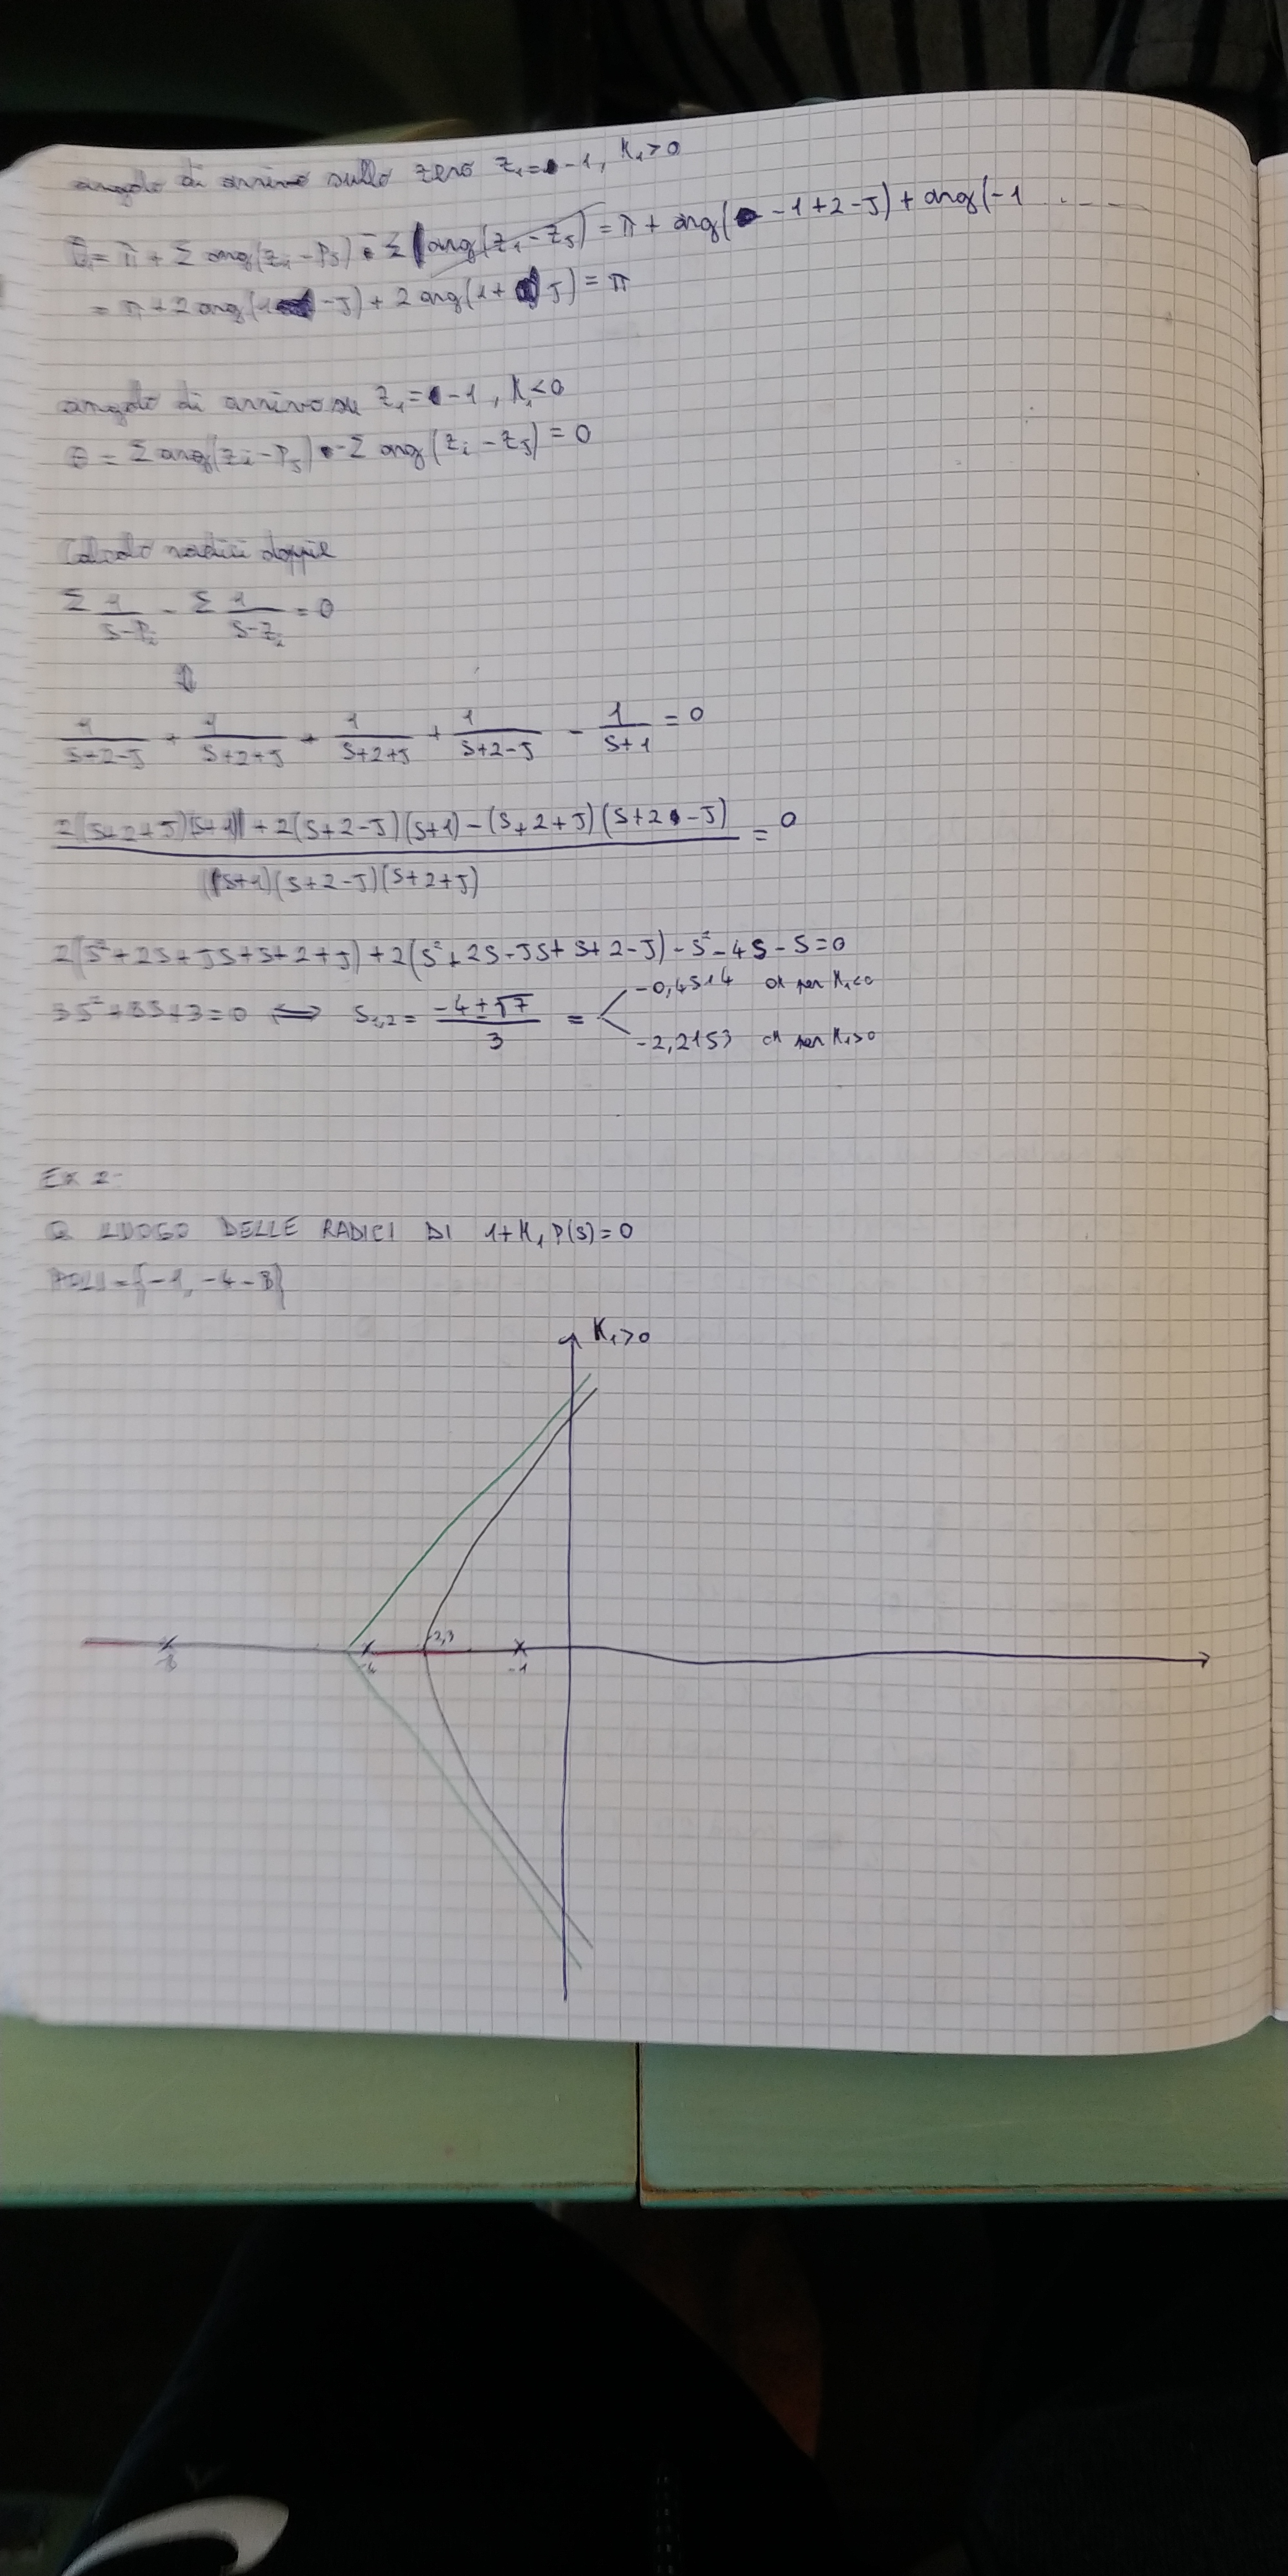 angolo di arrivo sullo zero z₁=-1, K₁>0
θ₁= π + Σ arg(z₁-Pj) - Σ arg(z₁-zj) = π + arg(-1+2-j) + arg(-1 ......
= π + 2 arg(1-j) + 2 arg(1+j) = π
angolo di arrivo su z₁=-1, K<0
θ = Σ arg(zi-Pj) - Σ arg(zi-zj) = 0
Calcolo radici doppie
Σ 1/(s-Pi) - Σ 1/(s-zi) = 0
⇕
1/(s+2-j) + 1/(s+2+j) + 1/(s+2+j) + 1/(s+2-j) - 1/(s+1) = 0
(2(s+2+j)(s+1) + 2(s+2-j)(s+1) - (s+2+j)(s+2-j)) / ((s+1)(s+2-j)(s+2+j)) = 0
2(s²+2s+js+s+2+j) + 2(s²+2s-js+s+2-j) - s²-4s-5=0
3s²+8s+3=0 ⟺ s₁,₂ = (-4±√7)/3 =
-0,4514 ok per K₁<0
-2,2153 ok per K₁>0
Ex 2
LUOGO DELLE RADICI DI 1+K₁P(s)=0
POLI={-1, -4 -8}
K₁>0
-8 -4 -2,3 -1